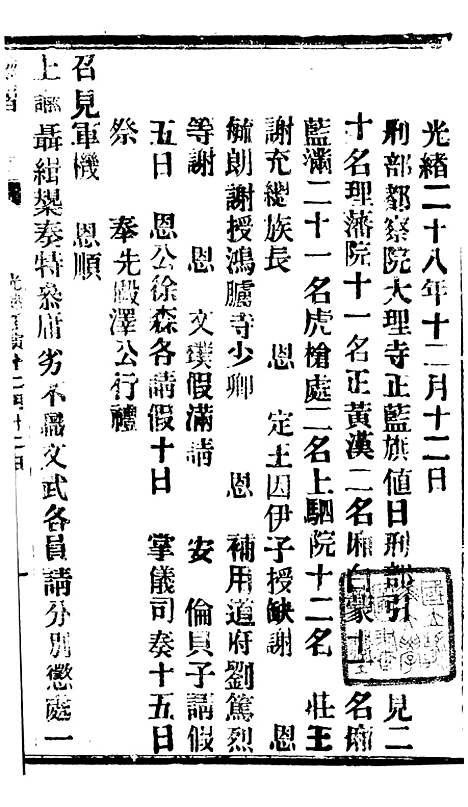 光緒二十八年十二月十二日
刑部都察院大理寺正藍旗值日刑部引 見二
十名理藩院十一名正黃漢二名廂白蒙十一名廂
藍滿二十一名虎槍處二名上駟院十二名 莊王
謝充總族長 恩 定王因伊子授缺謝 恩
毓朗謝授鴻臚寺少卿 恩 補用道府劉篤烈
等謝 恩 文璞假滿請 安 倫貝子請假
五日 恩公徐森各請假十日 掌儀司奏十五日
祭 奉先殿澤公行禮
召見軍機 恩順
上諭聶緝槼奏特參庸劣不職文武各員請分別懲處一